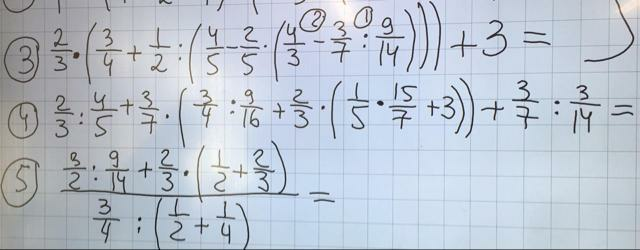 ② ①
③ 2/3 · (3/4 + 1/2 : (4/5 - 2/5 · (4/3 - 3/7 : 9/14))) + 3 =
④ 2/3 : 4/5 + 3/7 · (3/4 : 9/16 + 2/3 · (1/5 · 15/7 + 3)) + 3/7 : 3/14 =
⑤ (3/2 : 9/14 + 2/3 · (1/2 + 2/3)) / (3/4 : (1/2 + 1/4)) =